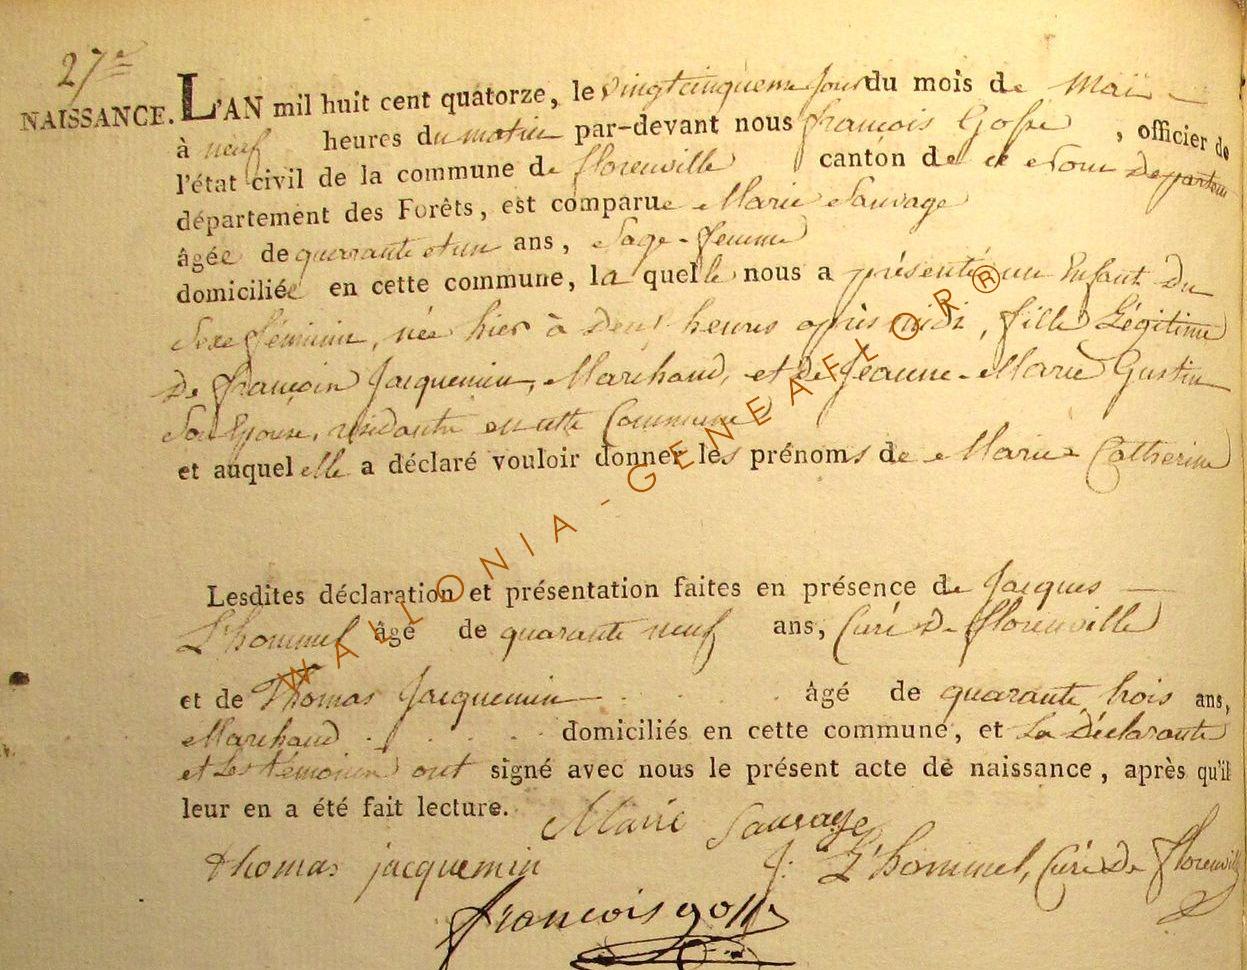 27e
NAISSANCE. L'AN mil huit cent quatorze, le vingtcinquieme jour du mois de Maï
à neuf heures du matin par-devant nous françois Gosse, officier de
l'état civil de la commune de florenville canton de ce nom
département des Forêts, est comparue Marie Sauvage
âgée de quarante et un ans, Sage-femme
domiciliée en cette commune, la quelle nous a présenté un Enfant Du
Sexe féminin, née hier à Deux heures après midi, fille Légitime
De françois Jacquemin, Marchand, et de Jeanne-Marie Gustin
Son Epouse, résidants en cette Commune
et auquel elle a déclaré vouloir donner les prénoms de Marie Catherine
Lesdites déclaration et présentation faites en présence de Jacques
L'hommel âgé de quarante neuf ans, Curé De florenville
et de Thomas Jacquemin âgé de quarante trois ans,
Marchand domiciliés en cette commune, et La Déclarante
et Les témoins ont signé avec nous le présent acte de naissance, après qu'il
leur en a été fait lecture. Marie Sauvage
thomas jacquemin J: L'hommel, Curé De florenville
francois gosse
WALLONIA-GENEAFLOR®